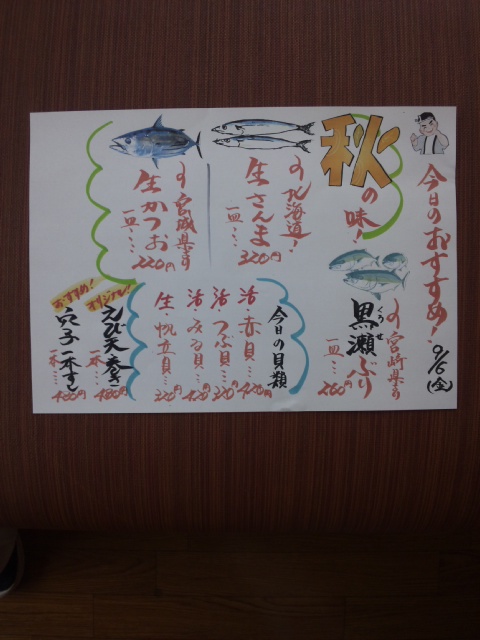 今日のおすすめ！
9/6(金)
秋の味！
宮崎県産
黒瀬ぶり
くろせ
一皿…260円
北海道！
生さんま
一皿…320円
宮城県産
生かつお
一皿…220円
今日の貝類
活・赤貝…420円
活・つぶ貝…320円
活・みる貝…420円
生・帆立貝…320円
おすすめ！
オリジナル！
えび天巻き
一本…480円
穴子一本すし
一本…480円